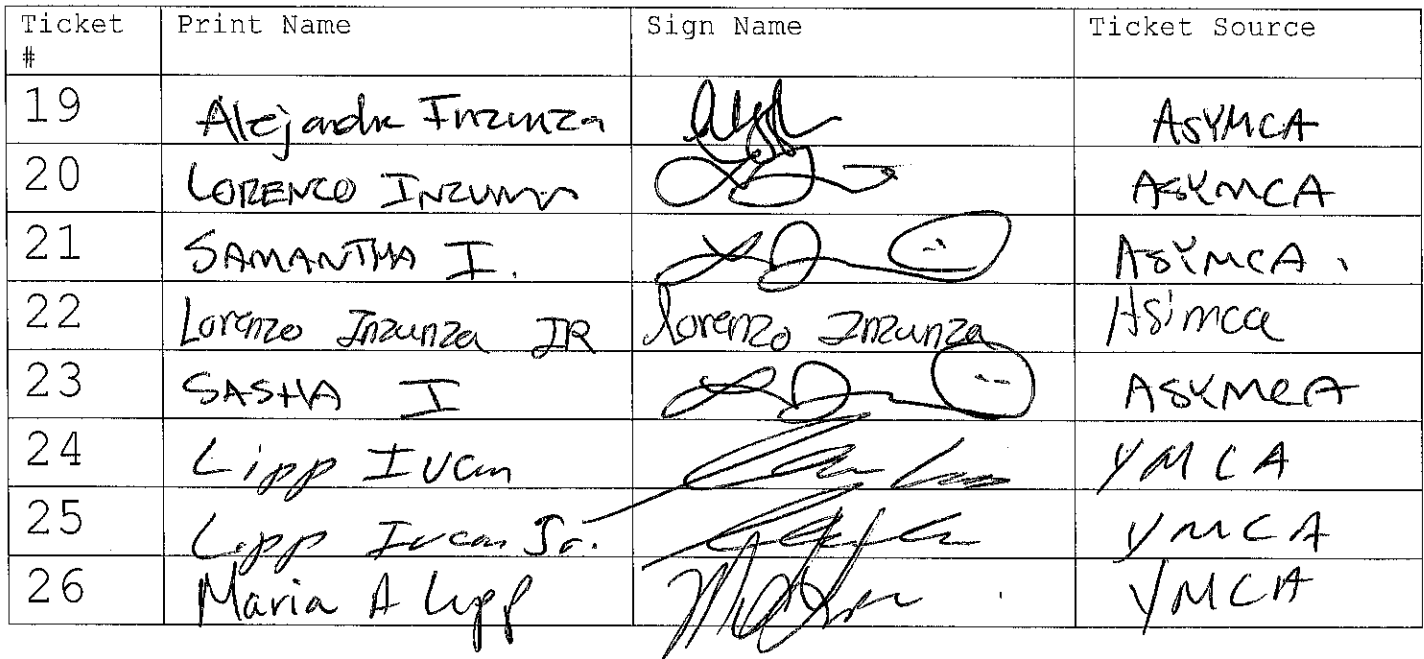 Ticket # Print Name Sign Name Ticket Source
19 Alejandra Inzunza ASYMCA
20 LORENZO INZUNZA ASYMCA
21 SAMANTHA I. ASYMCA.
22 Lorenzo Inzunza JR lorenzo Inzunza Asimca
23 SASHA I ASYMCA
24 Lipp Ivan YMCA
25 Lipp Ivan Jr. YMCA
26 Maria A Lipp YMCA